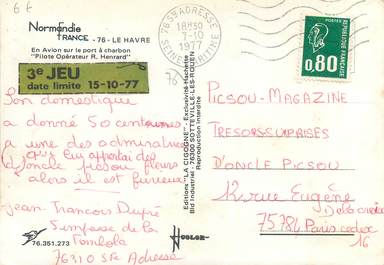 6 F
Normandie
FRANCE - 76 - LE HAVRE
En Avion sur le port à charbon
"Pilote Opérateur R. Henrard"
3e JEU
date limite 15-10-77
76 Ste ADRESSE
18H30
7-10
1977
SEINE MARITIME
POSTES
RÉPUBLIQUE FRANÇAISE
0,80
76
Son domestique
a donné 50 centimes
a une des admiratrices
qui lui apportai des
d'oncle picsou fleurs
alors il est furieux
Jean-Francois Dupré
Impasse de la
Tombola
76310 Ste Adresse
76.351.273
COLOR
Editions "LA CIGOGNE" - Exclusivité Hachette
Bld Industriel - 76300 SOTTEVILLE-LES-ROUEN
Reproduction interdite
PICSOU-MAGAZINE
TRESORS-SURPRISES
D'ONCLE PICSOU
rue Eugène
Delacroix
75784 Paris cedex
16